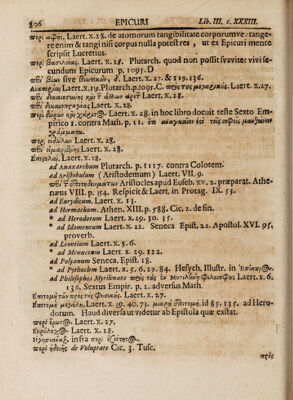 806 EPICURI Lib. III. c. XXXIII.
περὶ ἁφῆς. Laert. X. 28. de atomorum tangibilitate corporumve: tange-
re enim & tangi nisi corpus nulla potest res, ut ex Epicuri mente
scripsit Lucretius.
περὶ βασιλείας. Laert. X. 28. Plutarch. quod non possit suaviter vivi se-
cundum Epicurum p. 1095. D
περὶ βίων sive Βιωτικά. d. l. X. 27. & 119. 136.
Laert. X. 19. Plutarch. p. 1095. C. Laert. X. 27.
περὶ δικαιοσύνης καὶ τ̃ ἄλλων ἀρετ̃ Laert. X. 28.
περὶ δικαιοπραγίας Laert. X. 27.
περὶ δώρων καὶ χάριτ. Laert. X. 28. in hoc libro docuit teste Sexto Em-
pirico 1. contra Math. p. 11. ὅτι ἀναγκαῖον τοῖς σοφοῖς μανθάνειν
γράμματα.
περὶ εἰδώλων Laert. X. 28.
περὶ εἱμαρμένης Laert. X. 28.
Ἐπιστολαί. Laert. X. 28.
ad Anaxarchum Plutarch. p. 1117. contra Colotem.
ad Aristobulum (Aristodemum) Laert. VII. 9.
περὶ τ̃ ἐπιτηδευμάτων Aristocles apud Euseb. XV. 2. præparat. Athe-
næus VIII. p. 354. Respicit & Laert. in Protag. IX. 53.
ad Eurydicum. Laert. X. 13.
ad Hermachum. Athen. XIII. p. 588. Cic. 2. de fin.
* ad Herodotum Laert. X. 29. 30. 35.
* ad Idomeneum Laert. X. 22. Seneca Epist. 22. Apostol. XVI. 95.
proverb.
ad Leontium Laert. X. 5. 6.
* ad Menœceum Laert. X. 29. 122.
ad Polyænum Seneca Epist. 18.
* ad Pythoclem Laert. X. 5. 6. 29. 84. Hesych. Illustr. in Ἐπίκουρ.
ad Philosophos Mytilenæos πρὸς τοὺς ἐν Μυτιλήνῃ φιλοσόφους Laert. X. 6.
136. Sextus Empir. p. 2. adversus Math.
Ἐπιτομὴ τῶν πρὸς τοὺς Φυσικούς. Laert. X. 27.
Ἐπιτομὴ μεγάλη. Laert. X. 39. 40. 73. μικρὰ ἐπιτομή. id 85. 135. ad Hero-
dotum. Haud diversa ut videtur ab Epistola quæ exstat.
περὶ ἔρωτ. Laert. X. 27.
Laert. X. 28.
infra περὶ
περὶ ἡδονῆς de Voluptate Cic. 3. Tusc.
πρὸς